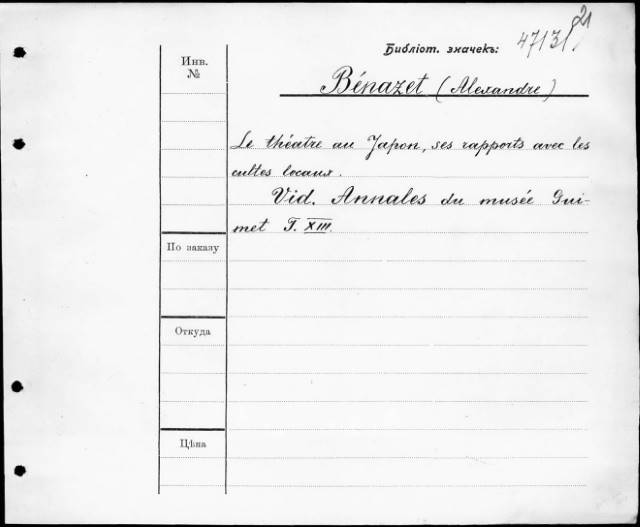 Библіот. значекъ: 4713/21
Инв.
№
Bénazet (Alexandre)
Le théatre au Japon, ses rapports avec les
cultes locaux.
Vid. Annales du musée Gui-
met T. XIII.
По заказу
Откуда
Цѣна